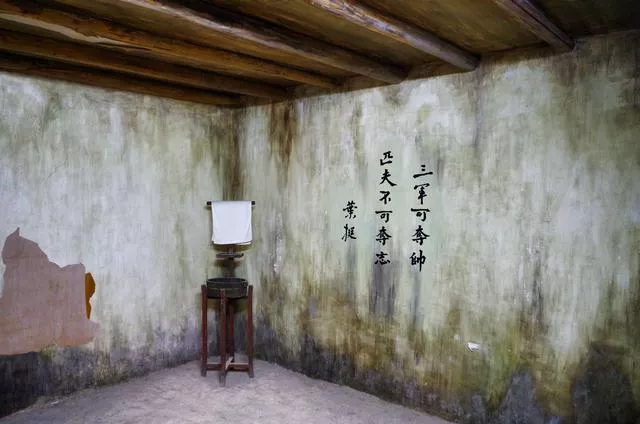 三军可夺帅
匹夫不可夺志
葉挺